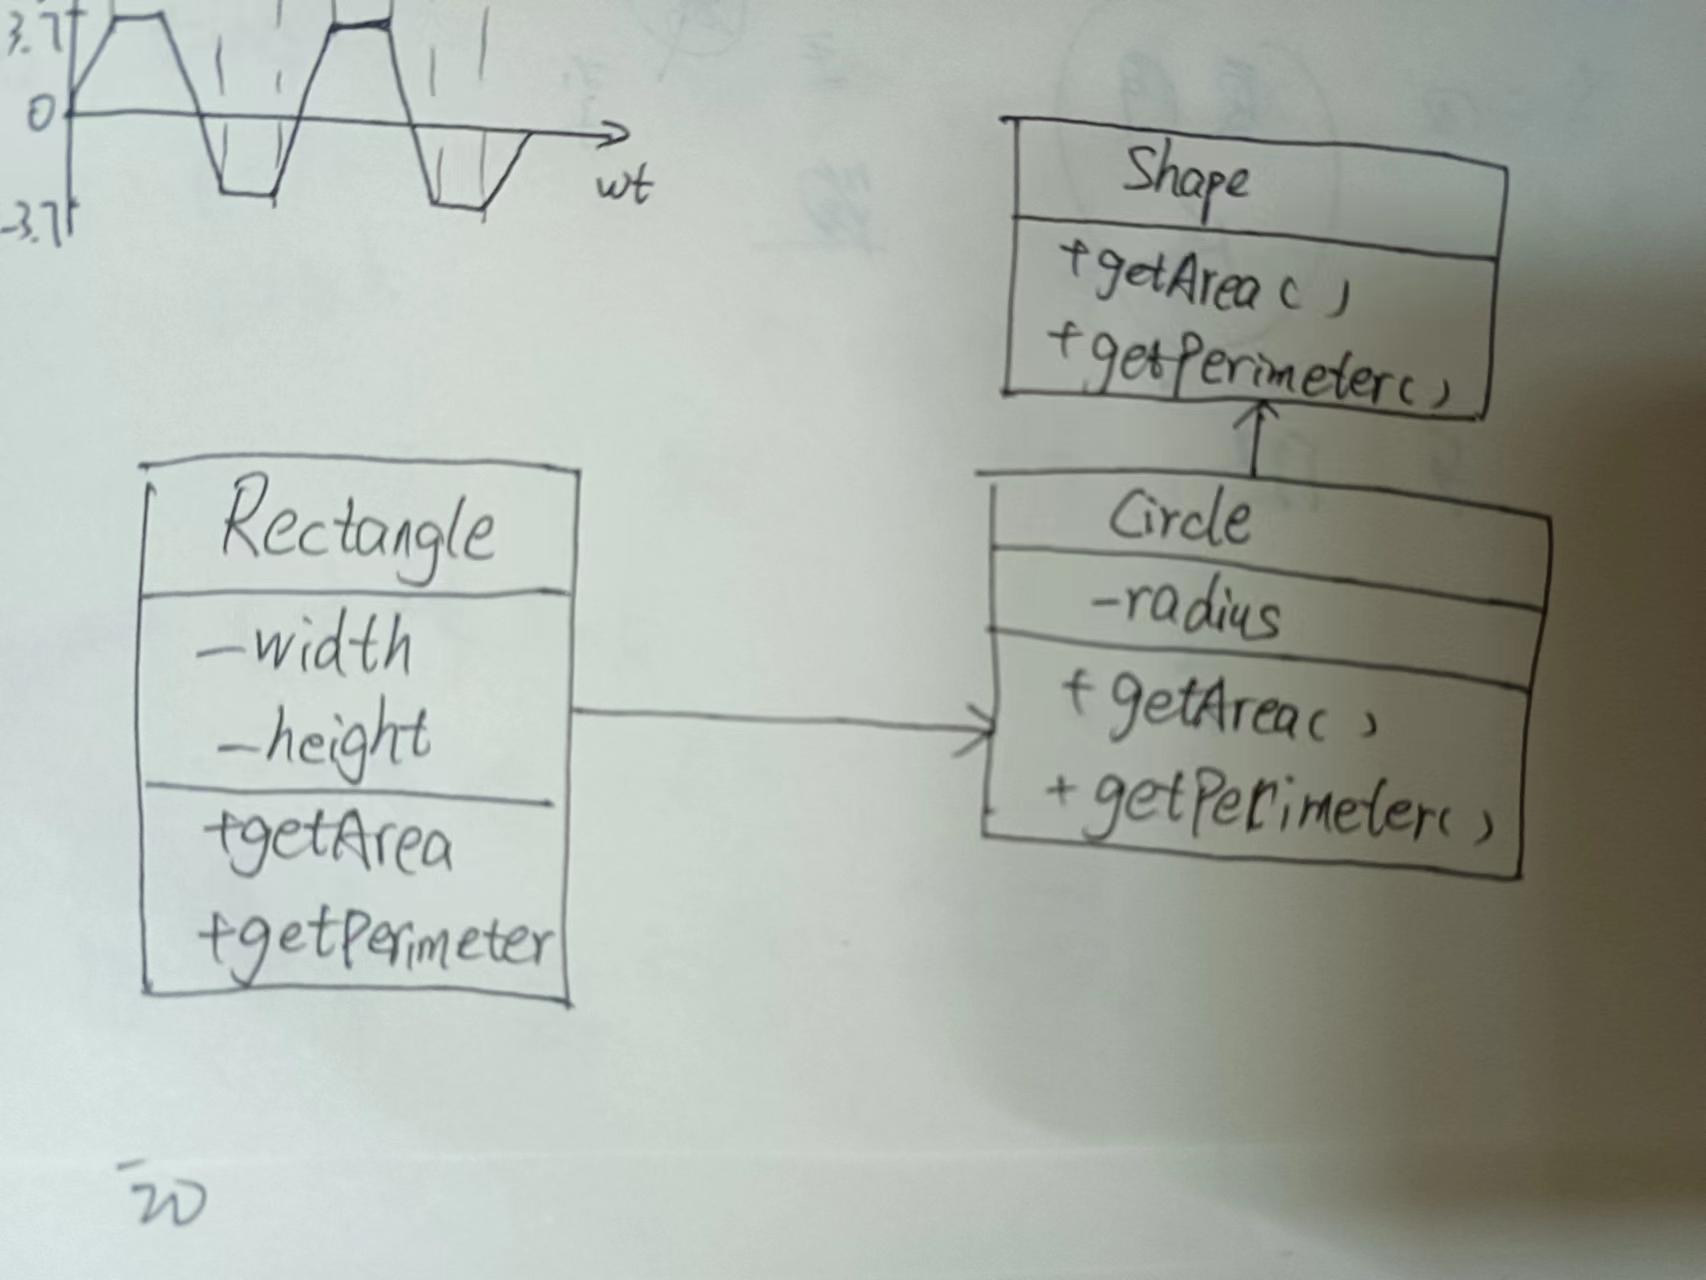 3.7
0
-3.7
wt
Shape
+getArea()
+getPerimeter()
Rectangle
-width
-height
+getArea
+getPerimeter
Circle
-radius
+getArea()
+getPerimeter()